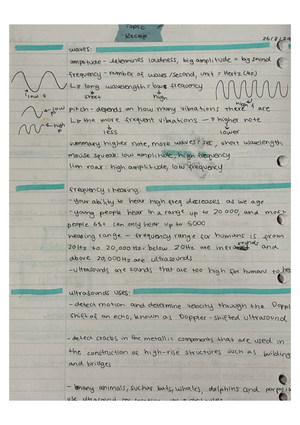 Topic
Recap
waves:
amplitude - determines loudness, big amplitude = big sound
frequency - number of waves/second, unit = Hertz (Hz)
↳ long wavelength = low frequency
short
high
low p
high p
pitch - depends on how many vibrations there are
↳ the more frequent vibrations → higher note
less
lower
summary: higher note, more waves/sec, short wavelength
mouse squeak: low amplitude, high frequency
lion roar: high amplitude, low frequency
frequency & hearing:
- your ability to hear high freq decreases as we age
- young people hear in a range up to 20,000, and most
people 65+ can only hear up to 5000
hearing range - frequency range for humans is from
20Hz to 20,000Hz: below 20Hz are infrasounds and
above 20,000Hz are ultrasounds
- ultrasounds are sounds that are too high for humans to
ultrasounds uses:
- detect motion and determine velocity through the Doppl
shift of an echo, known as Doppler-shifted ultrasound
- detect cracks in the metallic components that are used in
the construction of high-rise structures such as building
and bridges
- many animals, such as bats, whales, dolphins and